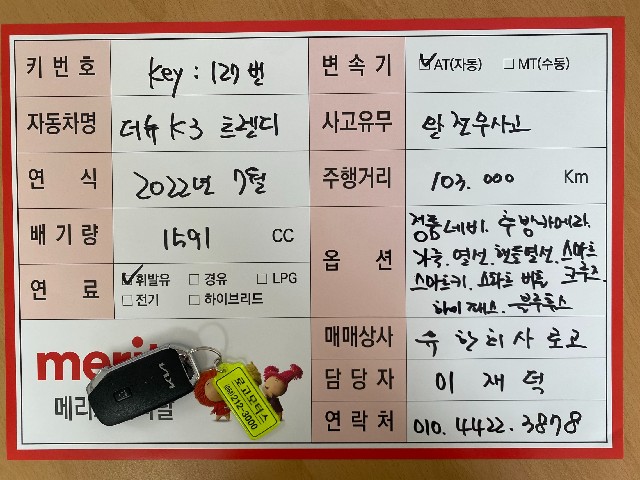 키 번호 key : 127번
변속기 ☑AT(자동) ☐MT(수동)
자동차명 더뉴 K3 트렌디
사고유무 완전무사고
연 식 2022년 7월
주행거리 103.000 Km
배기량 1591 CC
옵 션 정품네비. 후방카메라.
가죽.열선.핸들열선.스마트
스마트키.스타트 버튼 크루즈.
하이패스.블루투스
연 료 ☑휘발유 ☐경유 ☐LPG
☐전기 ☐하이브리드
매매상사
로고
담당자 이재덕
연락처 010.4422.3878
merit
메리
KIA
로고모터스
212-3000